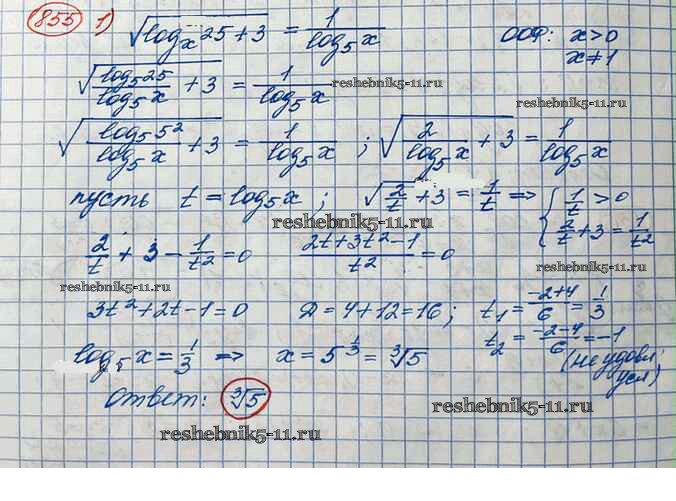 855 1) √(log_x 25 + 3) = 1/log₅x ООФ: x > 0
x ≠ 1
√(log₅25/log₅x + 3) = 1/log₅x reshebnik5-11.ru
reshebnik5-11.ru
√(log₅5²/log₅x + 3) = 1/log₅x ; √(2/log₅x + 3) = 1/log₅x
пусть t = log₅x ; √(2/t + 3) = 1/t ⇒ { 1/t > 0
2/t + 3 = 1/t²
reshebnik5-11.ru
2/t + 3 - 1/t² = 0 (2t + 3t² - 1)/t² = 0
reshebnik5-11.ru
reshebnik5-11.ru
3t² + 2t - 1 = 0 D = 4 + 12 = 16 ; t₁ = (-2+4)/6 = 1/3
t₂ = (-2-4)/6 = -1
(не удовл.
усл)
log₅x = 1/3 ⇒ x = 5^(1/3) = ∛5
Ответ: ∛5
reshebnik5-11.ru
reshebnik5-11.ru